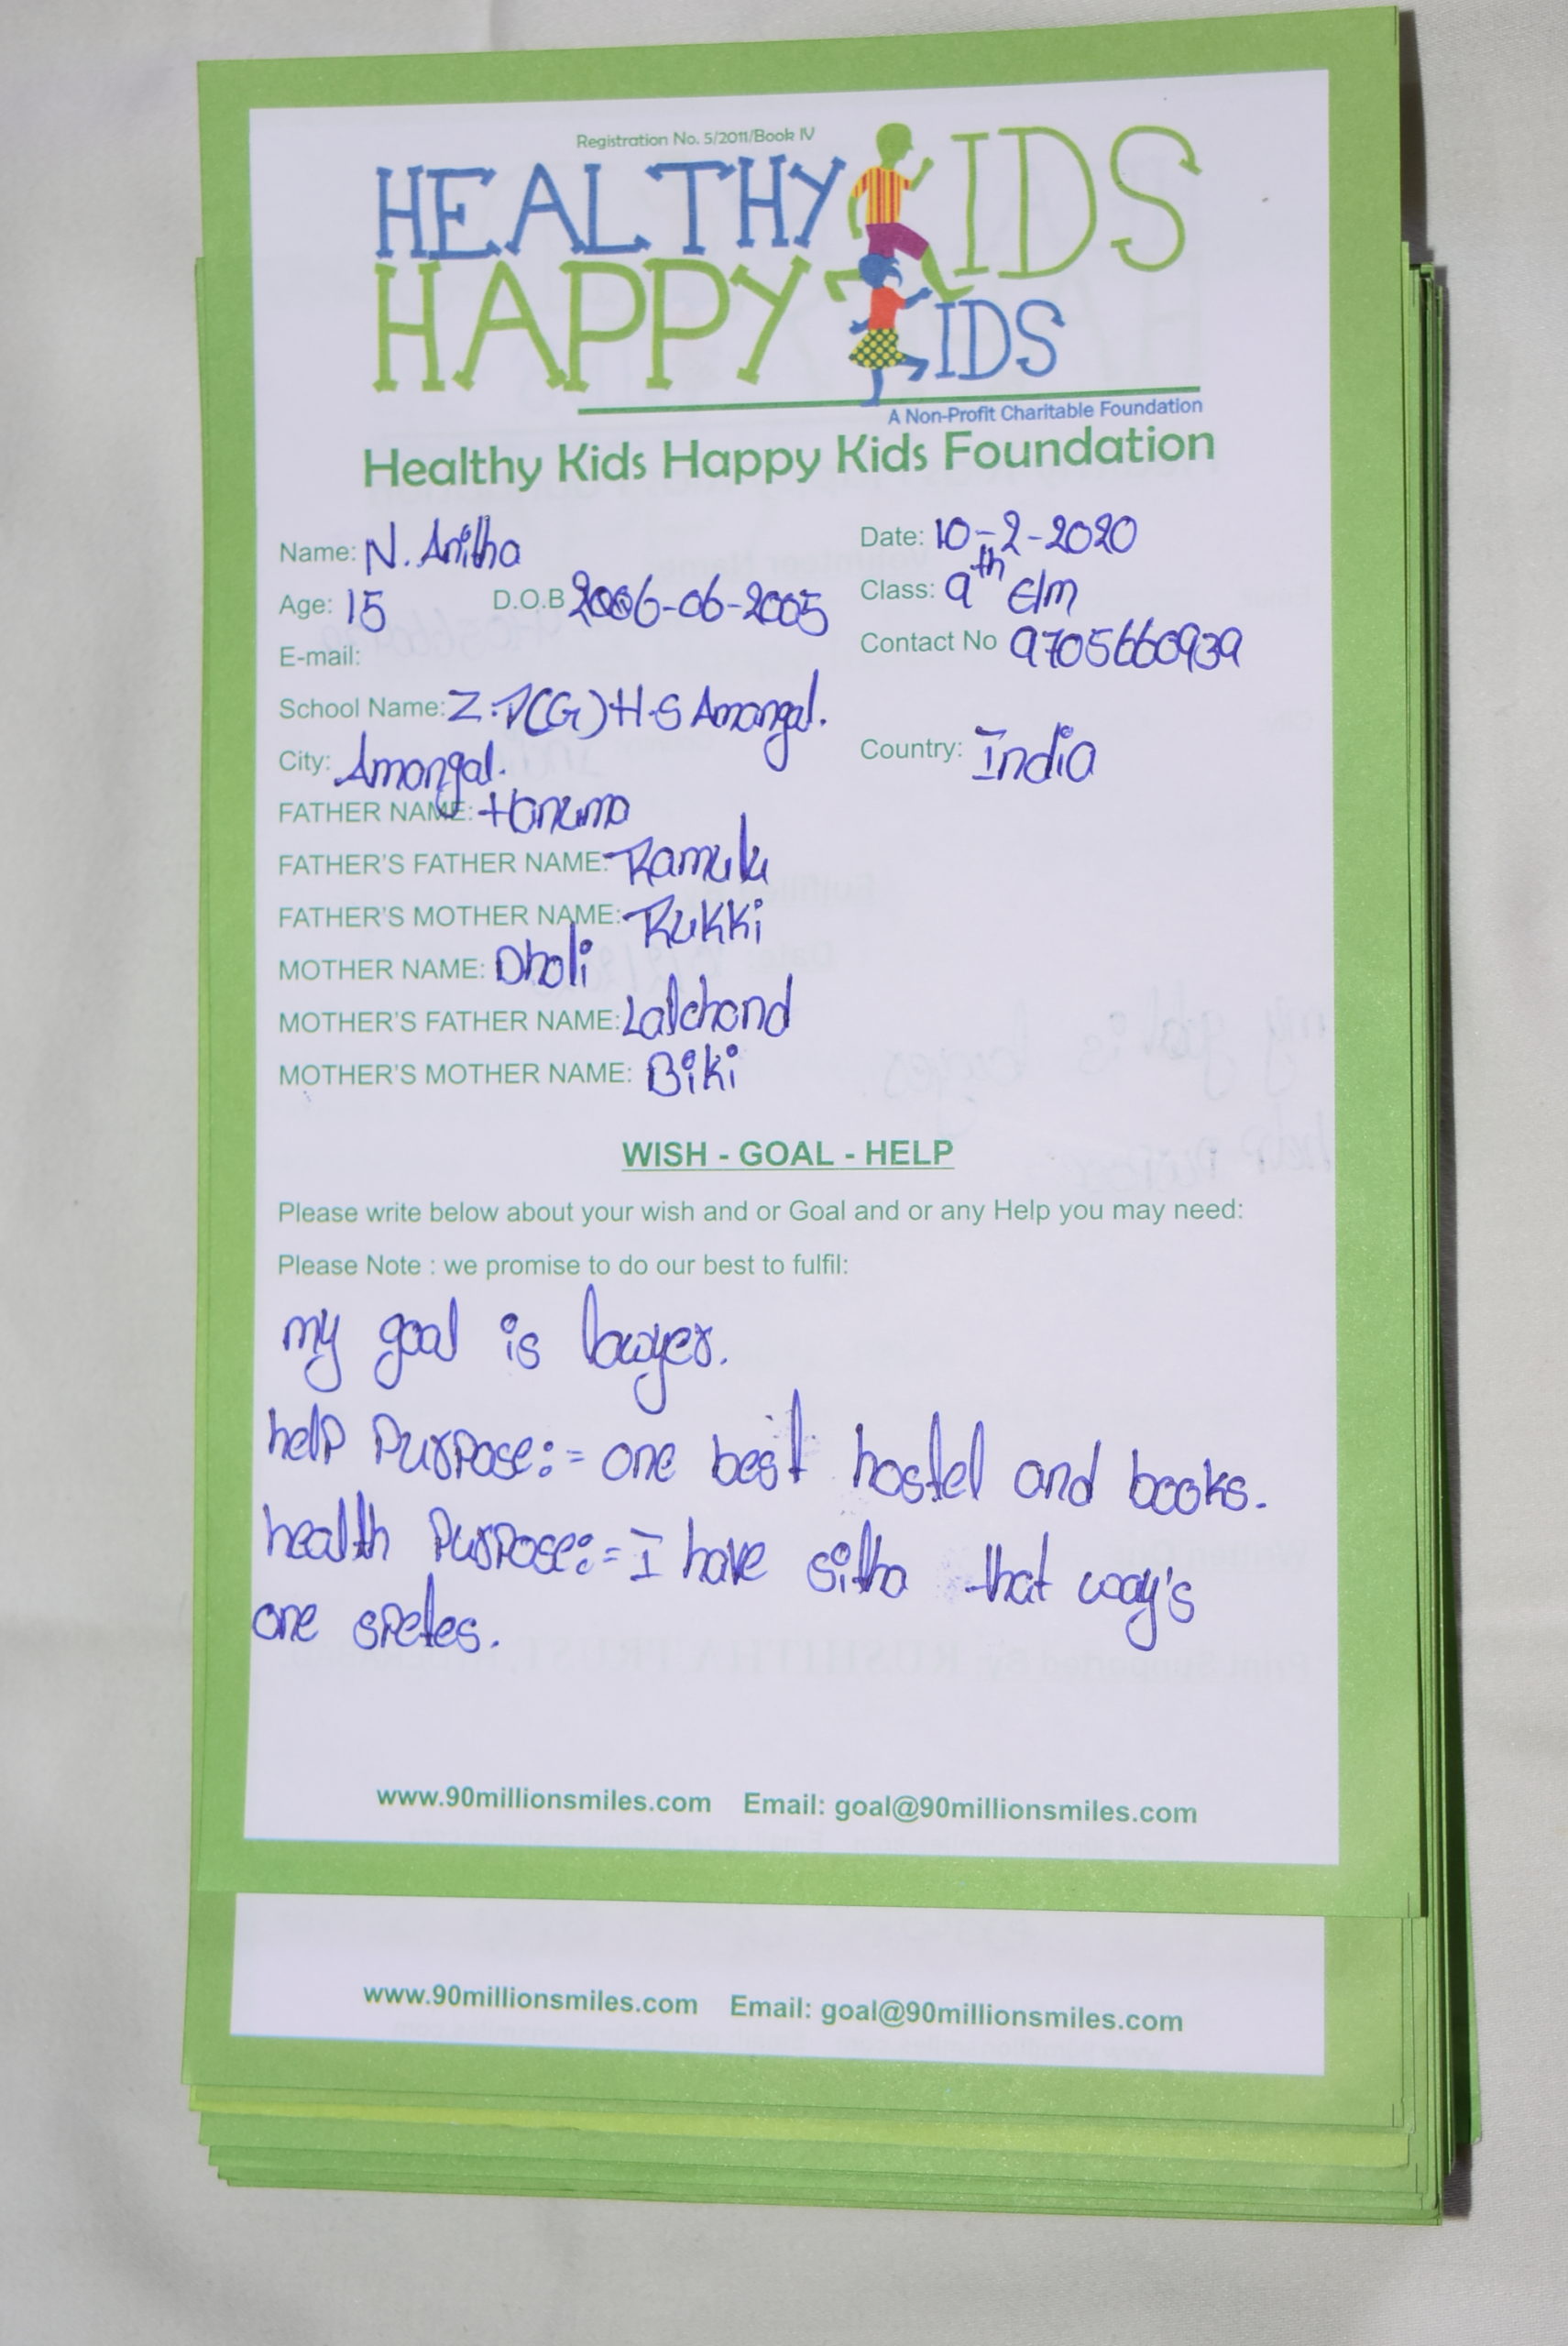 Registration No. 5/2011/Book IV
HEALTHY KIDS
HAPPY KIDS
A Non-Profit Charitable Foundation
Healthy Kids Happy Kids Foundation
Name: N. Anitha
Date: 10-2-2020
Age: 15 D.O.B 2006-06-2005
Class: 9th E/m
E-mail:
Contact No 9705660939
School Name: Z.P(G)H.S Amangal.
City: Amangal.
Country: India
FATHER NAME: Hanuma
FATHER'S FATHER NAME: Ramulu
FATHER'S MOTHER NAME: Rukki
MOTHER NAME: Dholi
MOTHER'S FATHER NAME: Lalchand
MOTHER'S MOTHER NAME: Biki
WISH - GOAL - HELP
Please write below about your wish and or Goal and or any Help you may need:
Please Note : we promise to do our best to fulfil:
my goal is lawyer.
help Purpose:= one best hostel and books.
health Purpose:= I have sitha that way's
one spetes.
www.90millionsmiles.com Email: goal@90millionsmiles.com
www.90millionsmiles.com Email: goal@90millionsmiles.com